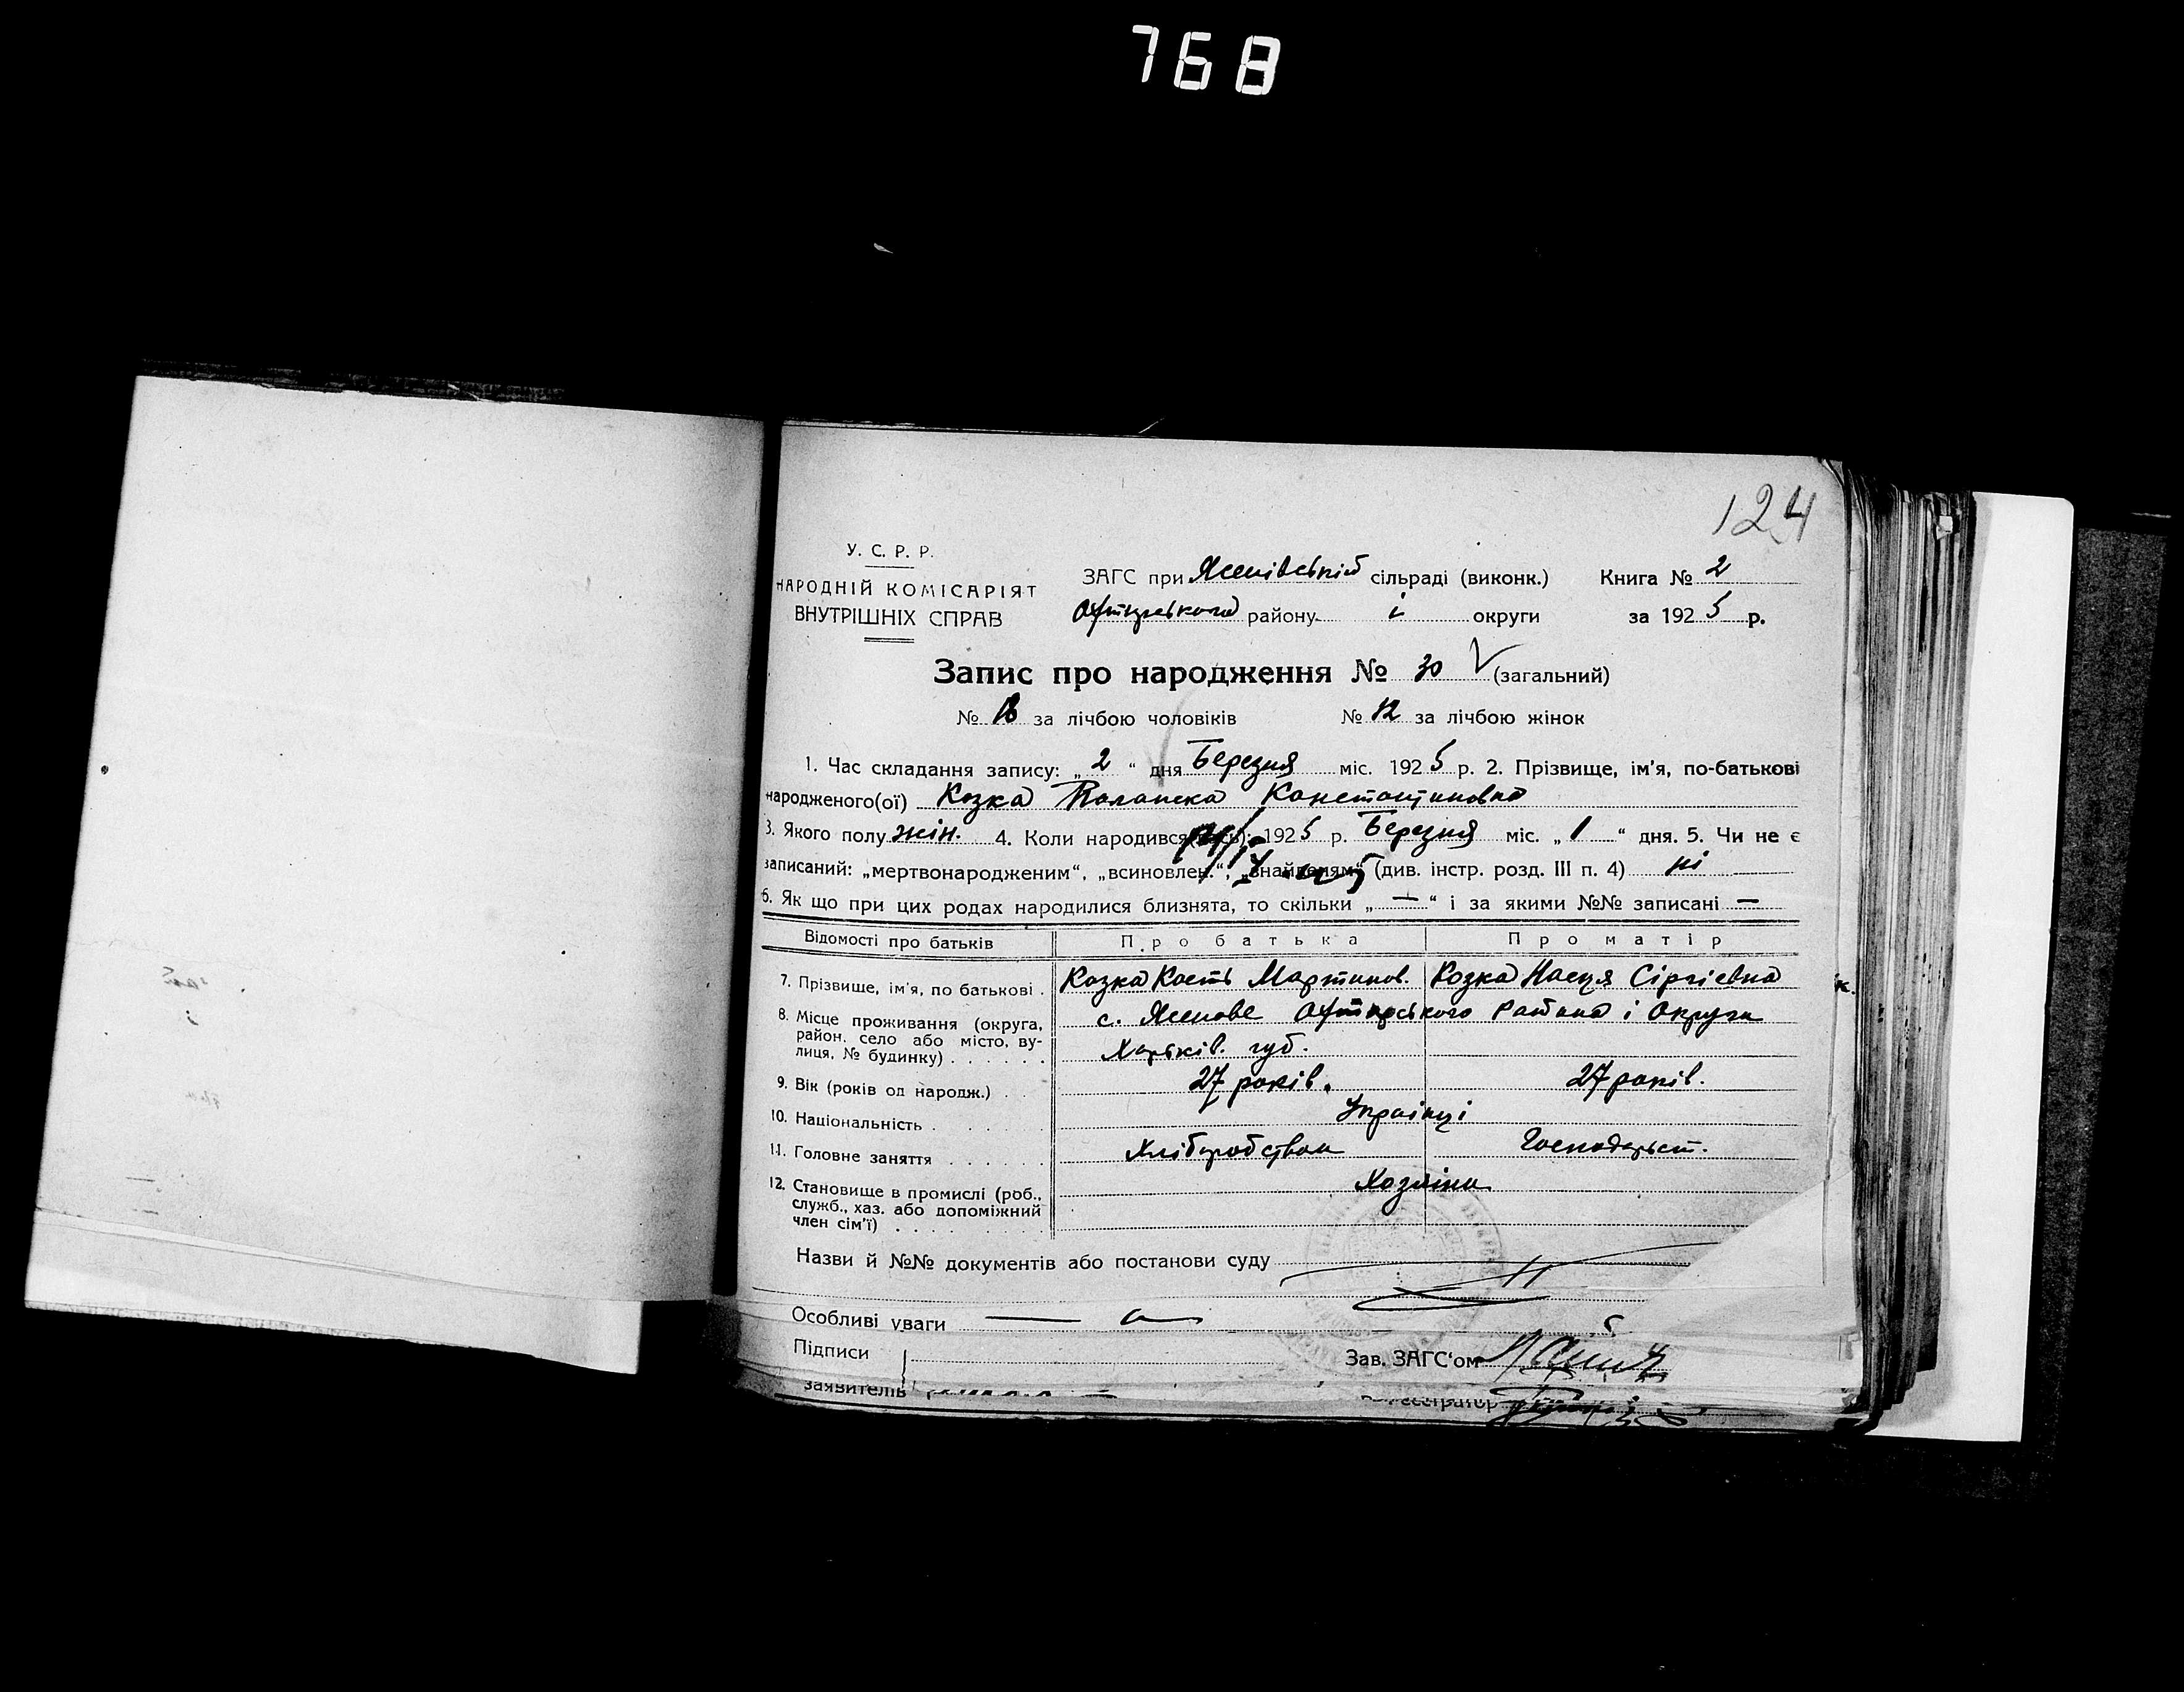 768
124
У. С. Р. Р.
НАРОДНІЙ КОМІСАРІЯТ
ВНУТРІШНІХ СПРАВ
ЗАГС при Ясенівській сільраді (виконк.) Книга № 2
Охтирського району і округи за 1925 р.
Запис про народження № 30 (загальний)
№ 18 за лічбою чоловіків № 12 за лічбою жінок
1. Час складання запису: „2“ дня Березня міс. 1925 р. 2. Прізвище, ім'я, по-батькові
народженого(ої) Козка
3. Якого полу жін. 4. Коли народився 1925 р. Березня міс. „1“ дня. 5. Чи не є
записаний: „мертвонародженим“, „всиновлен.“, „знайденям“ (див. інстр. розд. III п. 4) ні
6. Як що при цих родах народилися близнята, то скільки „—“ і за якими №№ записані —
Відомості про батьків Про батька Про матір
7. Прізвище, ім'я, по батькові . Козка Кость Мартинов. Козка Настя Сіргіевна
8. Місце проживання (округа, район, село або місто, вулиця, № будинку) с. Ясенове Охтирського Району і Округи
Харьків. губ.
9. Вік (років од народж.) 27 років. 27 років.
10. Національність Українці
11. Головне заняття Хліборобством Господарьст.
12. Становище в промислі (роб., служб., хаз. або допоміжний член сім'ї) Хозяїни
Назви й №№ документів або постанови суду
Особливі уваги —
Підписи Зав. ЗАГС'ом
заявителів Реєстратор